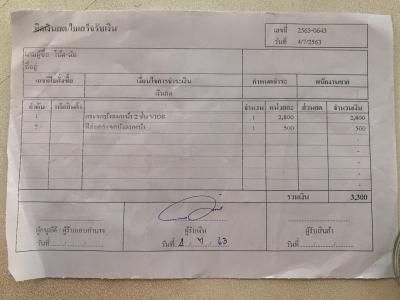 บิลเงินสด/ใบเสร็จรับเงิน
เลขที่ 2563-0643
วันที่ 4/7/2563
นามผู้ซื้อ
ที่อยู่
เลขที่ใบสั่งซื้อ เงื่อนไขการชำระเงิน กำหนดชำระ พนักงานขาย
เงินสด
ลำดับ รหัสสินค้า จำนวน หน่วยละ ส่วนลด จำนวนเงิน
1 กระจกบังลมหน้า 2 ชั้น VIOS 1 2,800 2,800
2 ฟิล์มกระจกบังลมหน้า 1 500 500
รวมเงิน 3,300
ผู้อนุมัติ / ผู้รับมอบอำนาจ ผู้รับเงิน ผู้รับสินค้า
วันที่ ......./......./....... วันที่ 4 7 63 วันที่ ......./......./.......